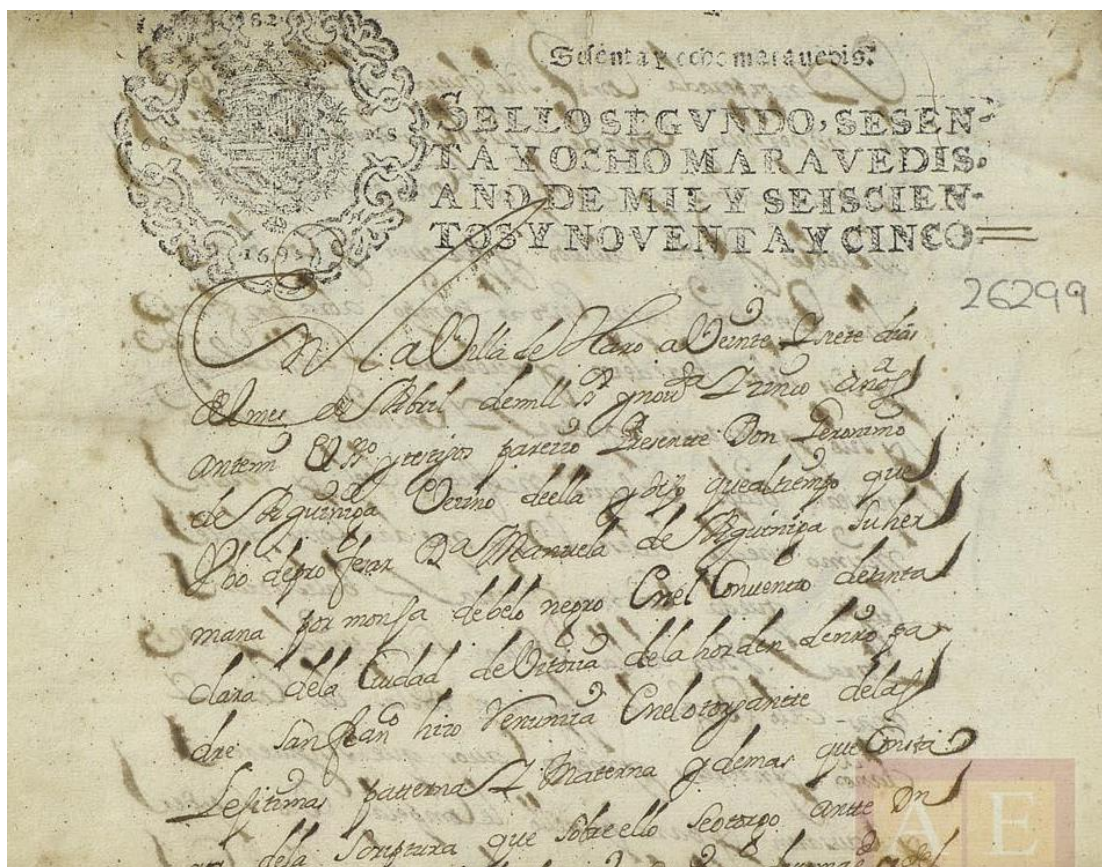 1695
Sesenta y ocho maravedis.
SELLO SEGVNDO, SESEN-
TA Y OCHO MARAVEDIS.
AÑO DE MIL Y SEISCIEN-
TOS Y NOVENTA Y CINCO
26299
En la Villa de Haro a Veinte y siete dias
del mes de Abril de mill y nov y cinco años
antemi el y testigos parezio presente Don Geronimo
de Arquiniga Vezino de ella y dijo que al tiempo que
hubo de profesar Da Manuela de Arquiniga su her
mana por monja de belo negro en el Convento de santa
clara de la Ciudad de Vitoria de la horden de nro pa
dre san franco hizo Renunzia en el otorgante de las
Lejitimas paterna y Materna y demas que Consta
de la Scriptura que sobre ello se otorgo antte Dn
A E